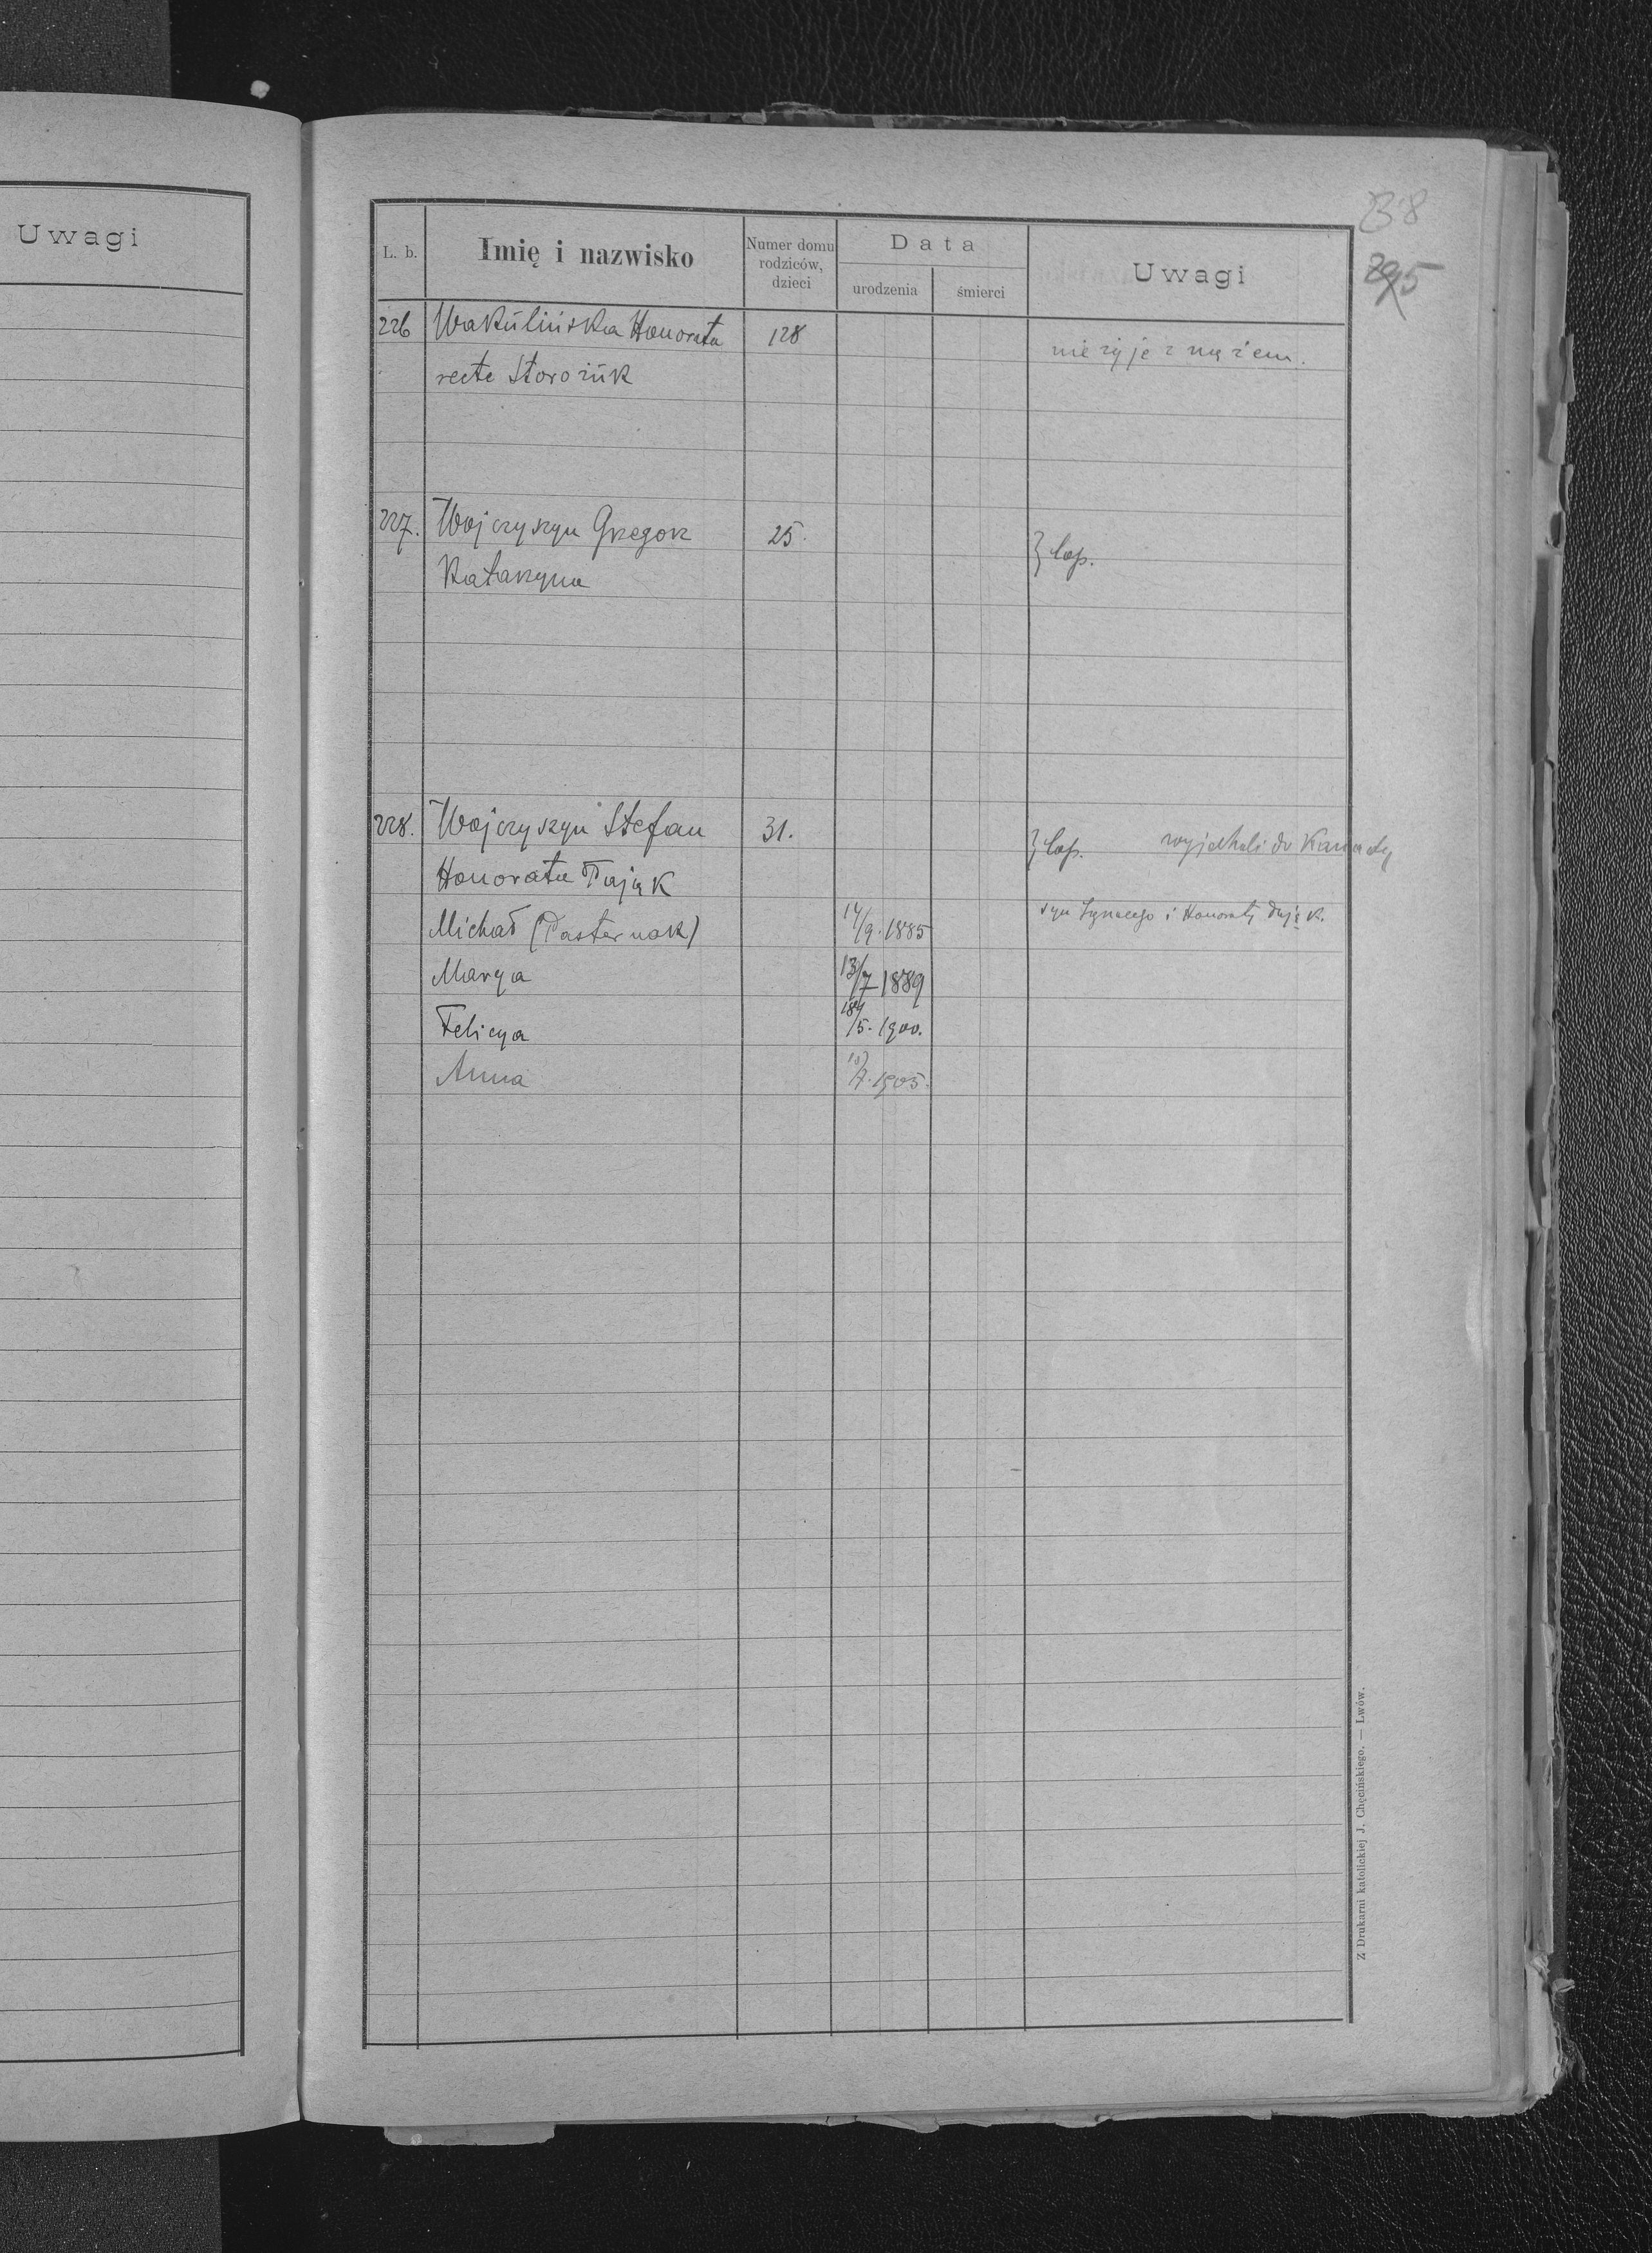 Uwagi
38
295
L. b.
Imię i nazwisko
Numer domu rodziców, dzieci
Data
urodzenia
śmierci
Uwagi
226 Wakulińska Honorata 128 nie żyje z mężem.
recte Storożuk
227. Wojczyszyn Grzegorz 25.
Katarzyna
228. Wojczyszyn Stefan 31. wyjechali do Kanady
Honorata Pająk
Michał (Pasternak) 14/9. 1885 syn Ignacego i Honoraty
Marya 13/7 1889
Felicya /5. 1900.
Anna 1905.
Z Drukarni katolickiej J. Chęcińskiego. — Lwów.